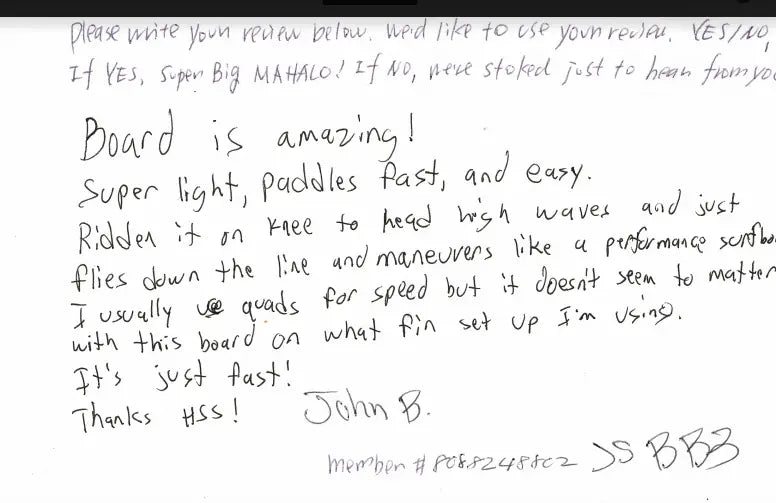 Please write your review below. We'd like to use your review. YES/NO,
If YES, Super Big MAHALO! If NO, we're stoked just to hear from you
Board is amazing!
Super light, paddles fast, and easy.
Ridden it on knee to head high waves and just
flies down the line and maneuvers like a performance surfbo
I usually use quads for speed but it doesn't seem to matter
with this board on what fin set up I'm using.
It's just fast!
Thanks HSS! John B.
member # 8088248802 JS BBB